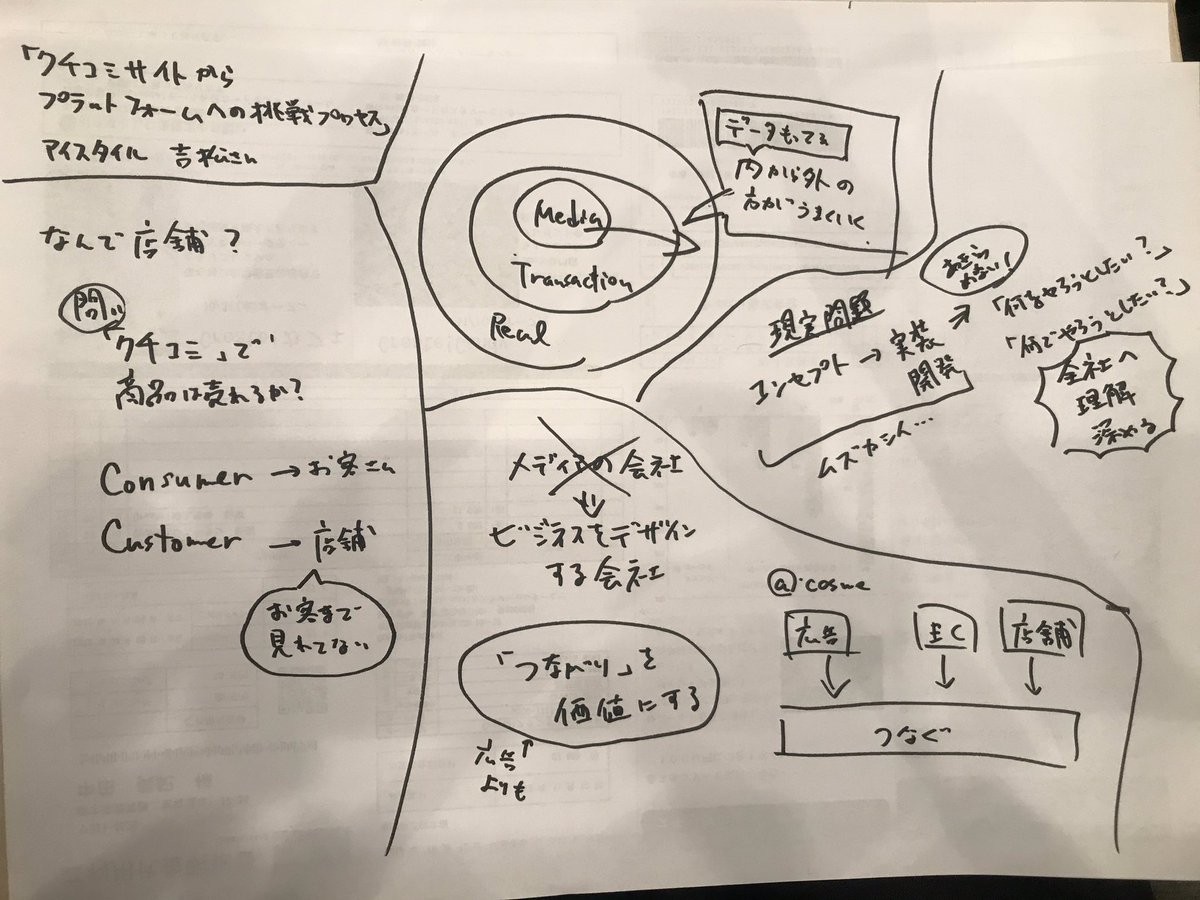 「クチコミサイトから
プラットフォームへの挑戦プロセス」
アイスタイル 吉松さん
なんで店舗?
問い
「クチコミ」で
商品は売れるか?
Consumer → お客さん
Customer → 店舗
お客まで
見れてない
Media
Transaction
Real
データもってる
内から外の
方がうまくいく
メディアの会社
ビジネスをデザイン
する会社
「つながり」を
価値にする
広告↑
よりも
あきらめない!
「何をやろうとしたい?」
「何でやろうとしたい?」
現実問題
コンセプト → 実装
開発
ムズカシイ…
会社へ
理解
深める
@cosme
広告
EC
店舗
つなぐ